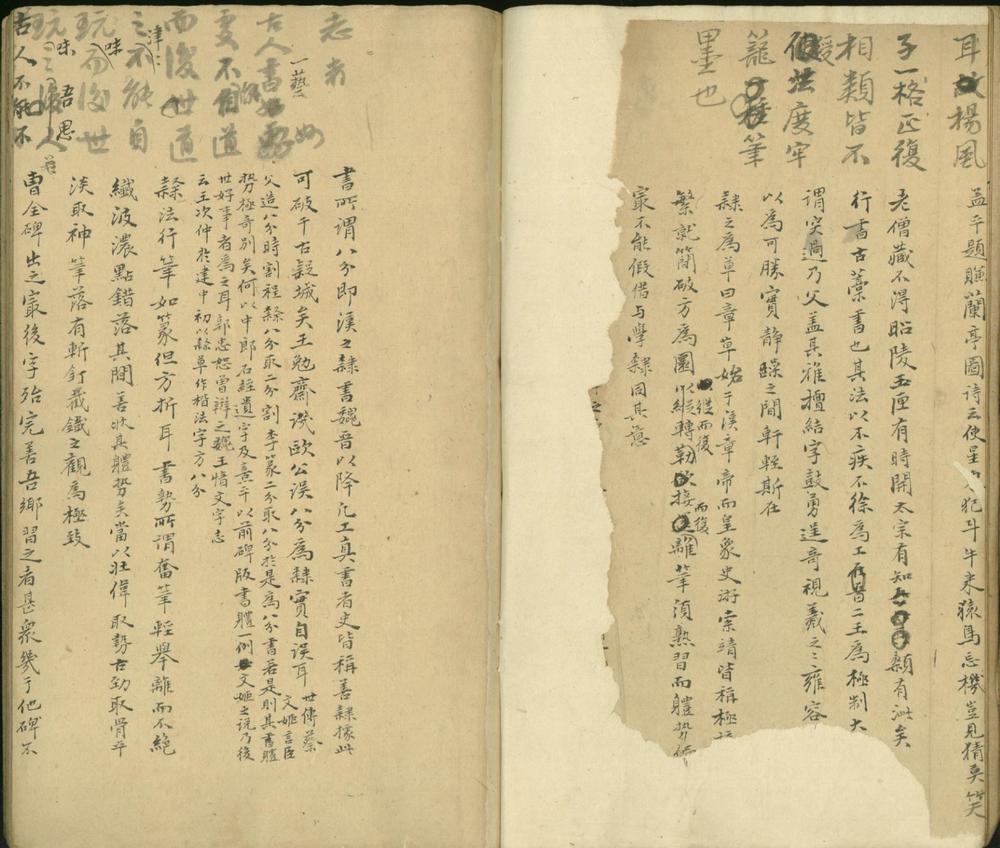 耳故楊風
子一格正復
相類皆不
法度牢
籠種筆
墨也
孟平題賺蘭亭圖詩云使星犯斗牛来猿馬忘機豈見猜莫笑
老僧藏不得昭陵玉匣有時開太宗有知顙有泚矣
行書古藁書也其法以不疾不徐為工晉二王為極制大
謂突過乃父蓋其雅擅結字鼓勇逞奇視羲之雍容
以為可勝實静躁之間軒輊斯在
隸之為草曰章草始于漢章帝而皇象史游索靖皆稱極
繁就簡破方為圜以縱轉勒接離筆須熟習而軆勢
縱而後
而後
寂不能假借与學隸同其意
志者
一藝
古人書
要不自道
而後世道
之不能自
津
玩而後世
味
味
吾思
古人不能不
書所谓八分即漢之隸書魏晉以降凡工真書者史皆稱善隸據此
可破千古疑城矣王勉齋譏歐公误八分為隸實自误耳
世傳蔡
文姬言臣
父造八分時割程隸八分取二分割李篆二分取八分於是為八分書若是則其書軆
勢極奇别矣何以中郎石經遺字及熹平以前碑版書軆一例文姬之说乃後
世好事者為之耳郭忠恕嘗辨之魏王愔文字志
云王次仲於建中初以隸草作楷法字方八分
隸法行筆如篆但方折耳書勢所谓奮筆輕舉離而不絶
纖波濃點錯落其間善狀其軆勢矣當以壮偉取勢古勁取骨平
淡取神筆落有斬釘截鐵之觀為極致
曹全碑出之寂後字殆完善吾鄉習之者甚衆幾于他碑不